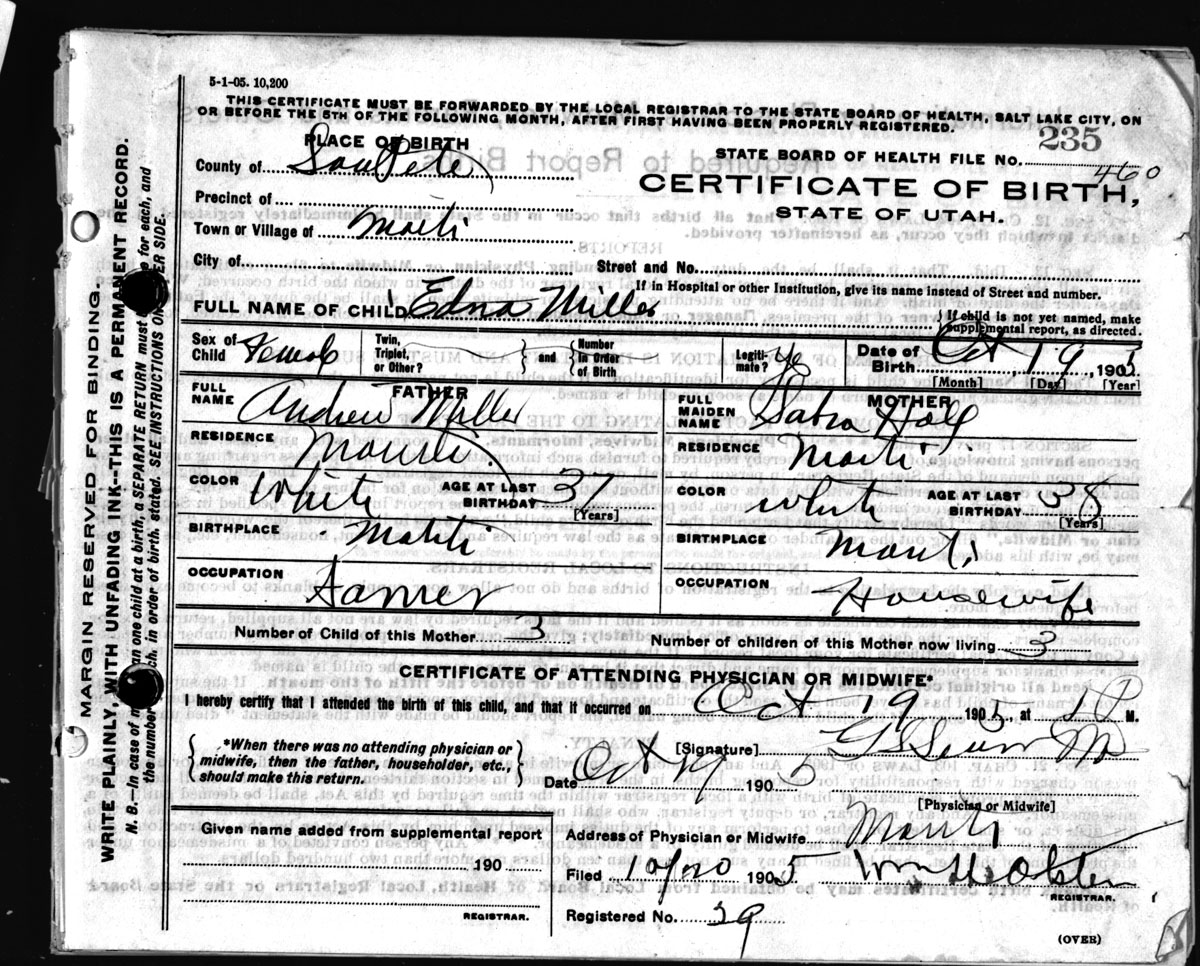 5-1-05. 10,200
THIS CERTIFICATE MUST BE FORWARDED BY THE LOCAL REGISTRAR TO THE STATE BOARD OF HEALTH, SALT LAKE CITY, ON
OR BEFORE THE 5TH OF THE FOLLOWING MONTH, AFTER FIRST HAVING BEEN PROPERLY REGISTERED.
PLACE OF BIRTH
STATE BOARD OF HEALTH FILE NO. 235
460
County of SanPete
CERTIFICATE OF BIRTH,
STATE OF UTAH.
Precinct of
Town or Village of Manti
City of Street and No.
If in Hospital or other Institution, give its name instead of Street and number.
FULL NAME OF CHILD Edna Miller
If child is not yet named, make supplemental report, as directed.
Sex of Child Female
Twin, Triplet, or Other? and Number in Order of Birth
Legitimate? Yes
Date of Birth Oct 19 1905
[Month] [Day] [Year]
FATHER
FULL NAME Andrew Miller
RESIDENCE Manti
COLOR White AGE AT LAST BIRTHDAY 37 [Years]
BIRTHPLACE Manti
OCCUPATION Farmer
MOTHER
FULL MAIDEN NAME
RESIDENCE Manti
COLOR White AGE AT LAST BIRTHDAY 38 [Years]
BIRTHPLACE Manti
OCCUPATION Housewife
Number of Child of this Mother 3 Number of children of this Mother now living 3
CERTIFICATE OF ATTENDING PHYSICIAN OR MIDWIFE*
I hereby certify that I attended the birth of this child, and that it occurred on Oct 19 1905, at P M.
*When there was no attending physician or
midwife, then the father, householder, etc.,
should make this return.
[Signature]
Date Oct 19 1905
[Physician or Midwife]
Given name added from supplemental report
190
REGISTRAR.
Address of Physician or Midwife Manti
Filed 10/20 1905
REGISTRAR.
Registered No. 39
(OVER)
MARGIN RESERVED FOR BINDING.
WRITE PLAINLY, WITH UNFADING INK--THIS IS A PERMANENT RECORD.
N. B.--In case of more than one child at a birth, a SEPARATE RETURN must be made for each, and
the number of each, in order of birth, stated. SEE INSTRUCTIONS ON OTHER SIDE.